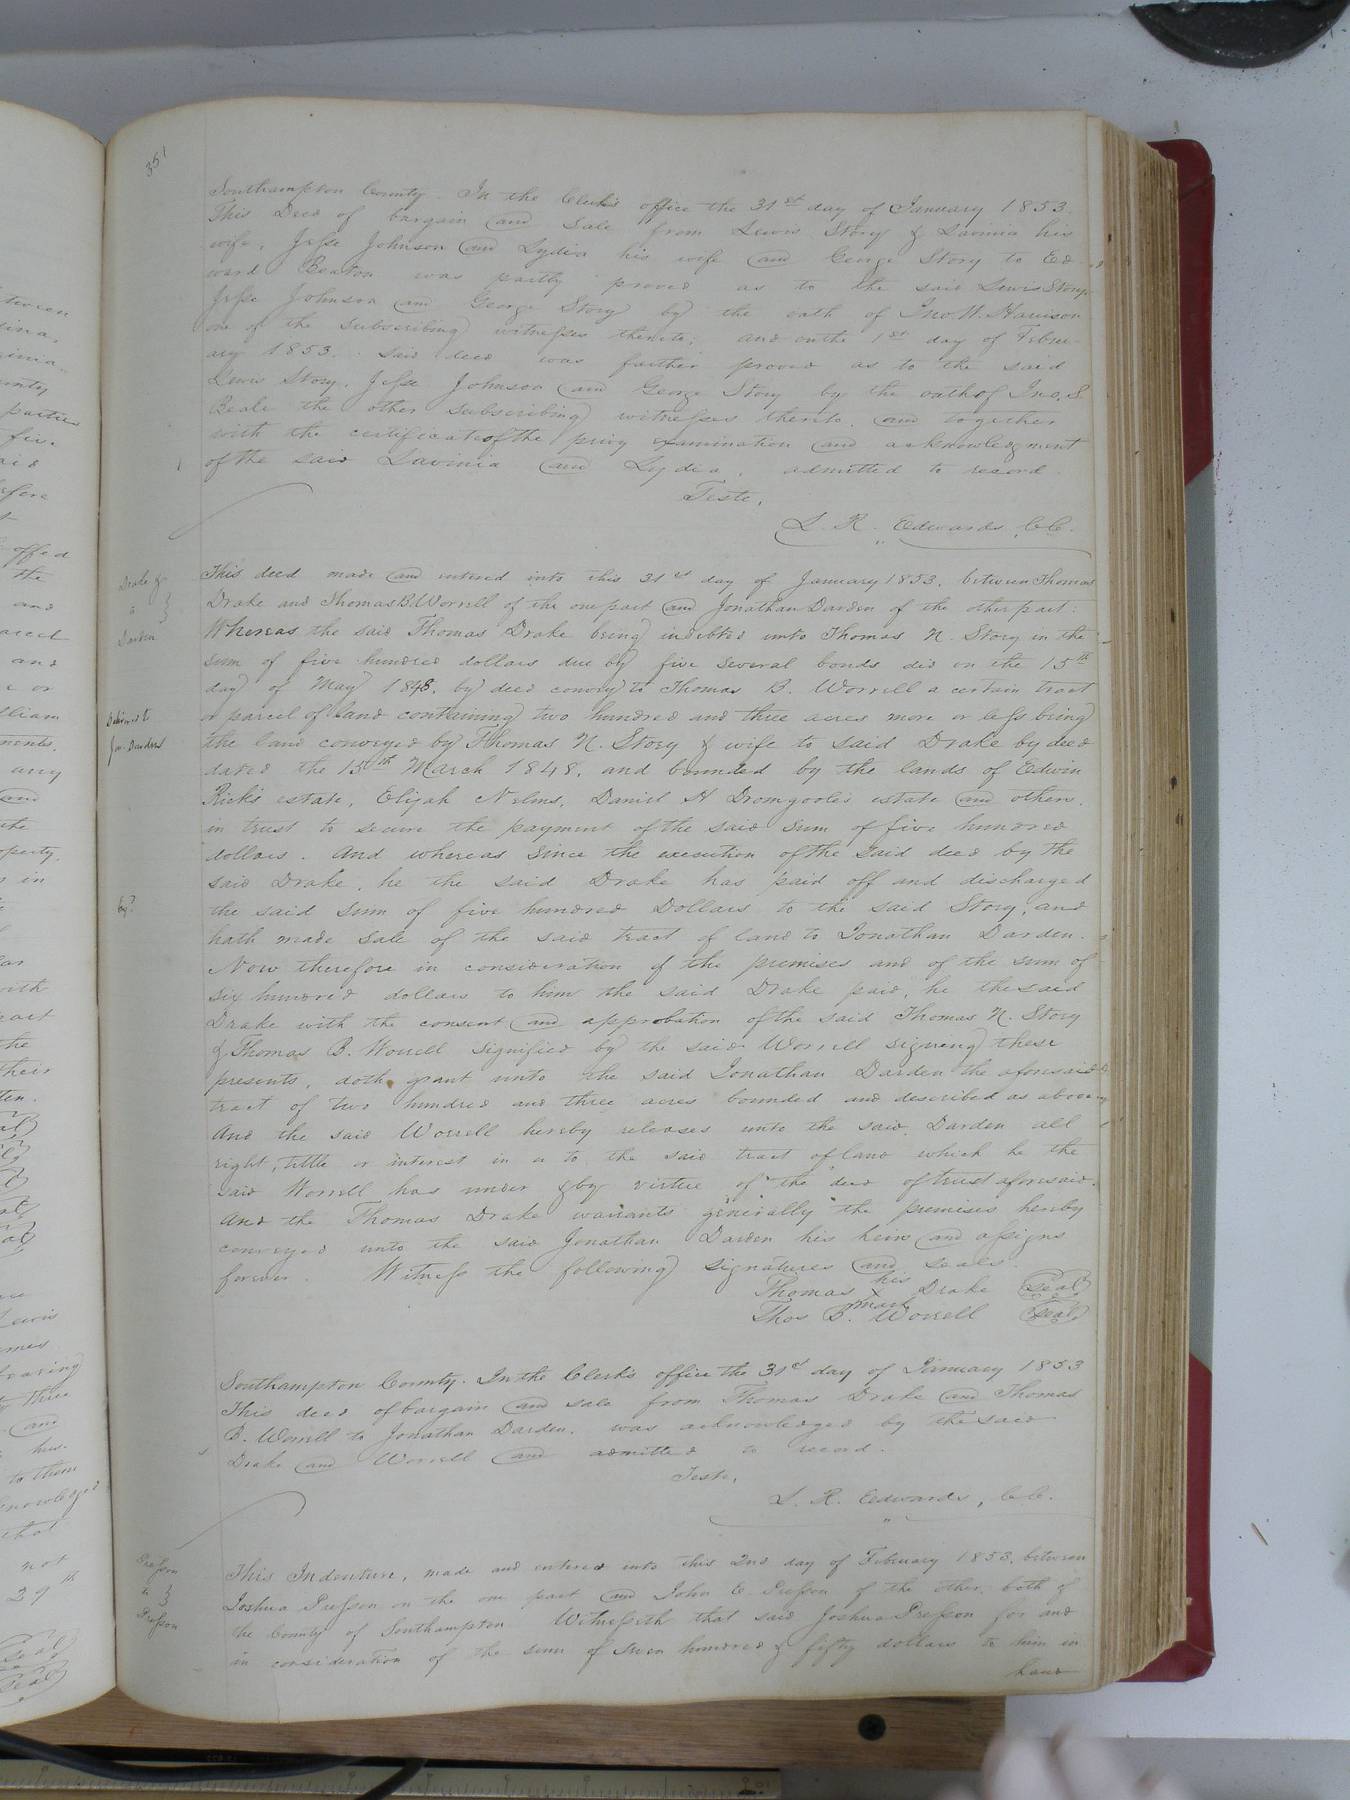 351
Southampton County. In the Clerk's office the 31st day of January 1853.
This Deed of bargain and Sale from Lewis Story & Lavinia his
wife, Jesse Johnson and Lydia his wife and George Story to Ed-
ward Beaton was partly proved as to the said Lewis Story
Jesse Johnson and George Story by the oath of Jno. W. Harrison
one of the Subscribing witnesses thereto; and on the 1st day of Febru-
ary 1853. said deed was further proved as to the said
Lewis Story, Jesse Johnson and George Story by the oath of Jno. S.
Beale the other Subscribing witnesses thereto. and together
with the certificate of the privy examination and acknowledgment
of the said Lavinia and Lydia, admitted to record.
Teste,
L. R. Edwards, C.C.
Drake &
Darden
This deed made and entered into this 31st day of January 1853, between Thomas
Drake and Thomas B. Worrell of the one part and Jonathan Darden of the other part:
Whereas the said Thomas Drake being indebted unto Thomas N. Story in the
sum of five hundred dollars due by five several bonds did on the 15th
day of May 1848, by deed convey to Thomas B. Worrell a certain tract
Delivered to
Jon. Darden
or parcel of land containing two hundred and three acres more or less being
the land conveyed by Thomas N. Story & wife to said Drake by deed
dated the 15th March 1848, and bounded by the lands of Edwin
Rick's estate, Elijah Nelms, Daniel H Dromgoole's estate and others,
in trust to secure the payment of the said sum of five hundred
dollars. And whereas since the execution of the said deed by the
said Drake, he the said Drake has paid off and discharged
Exd
the said sum of five hundred Dollars to the said Story, and
hath made sale of the said tract of land to Jonathan Darden.
Now therefore in consideration of the premises and of the sum of
six hundred dollars to him the said Drake paid, he the said
Drake with the consent and approbation of the said Thomas N. Story
& Thomas B. Worrell signified by the said Worrell signing these
presents, doth grant unto the said Jonathan Darden the aforesaid
tract of two hundred and three acres bounded and described as above
And the said Worrell hereby releases unto the said Darden all
right, tittle or interest in or to the said tract of land which he the
said Worrell has under & by virtue of the deed of trust aforesaid.
And the Thomas Drake warrants generally the premises hereby
conveyed unto the said Jonathan Darden his heirs and assigns
forever. Witness the following signatures and seals.
Thomas his X mark Drake Seal
Thos B. Worrell Seal
Southampton County. In the Clerk's office the 31st day of January 1853
This deed of bargain and sale from Thomas Drake and Thomas
B. Worrell to Jonathan Darden. was acknowledged by the said
Drake and Worrell and admitted to record.
Teste,
L. R. Edwards, C.C.
Presson
to
Presson
This Indenture, made and entered into this 2nd day of February 1853, between
Joshua Presson on the one part and John E. Presson of the other, both of
the County of Southampton Witnesseth that said Joshua Presson for and
in consideration of the sum of Seven hundred & fifty dollars to him in
hand